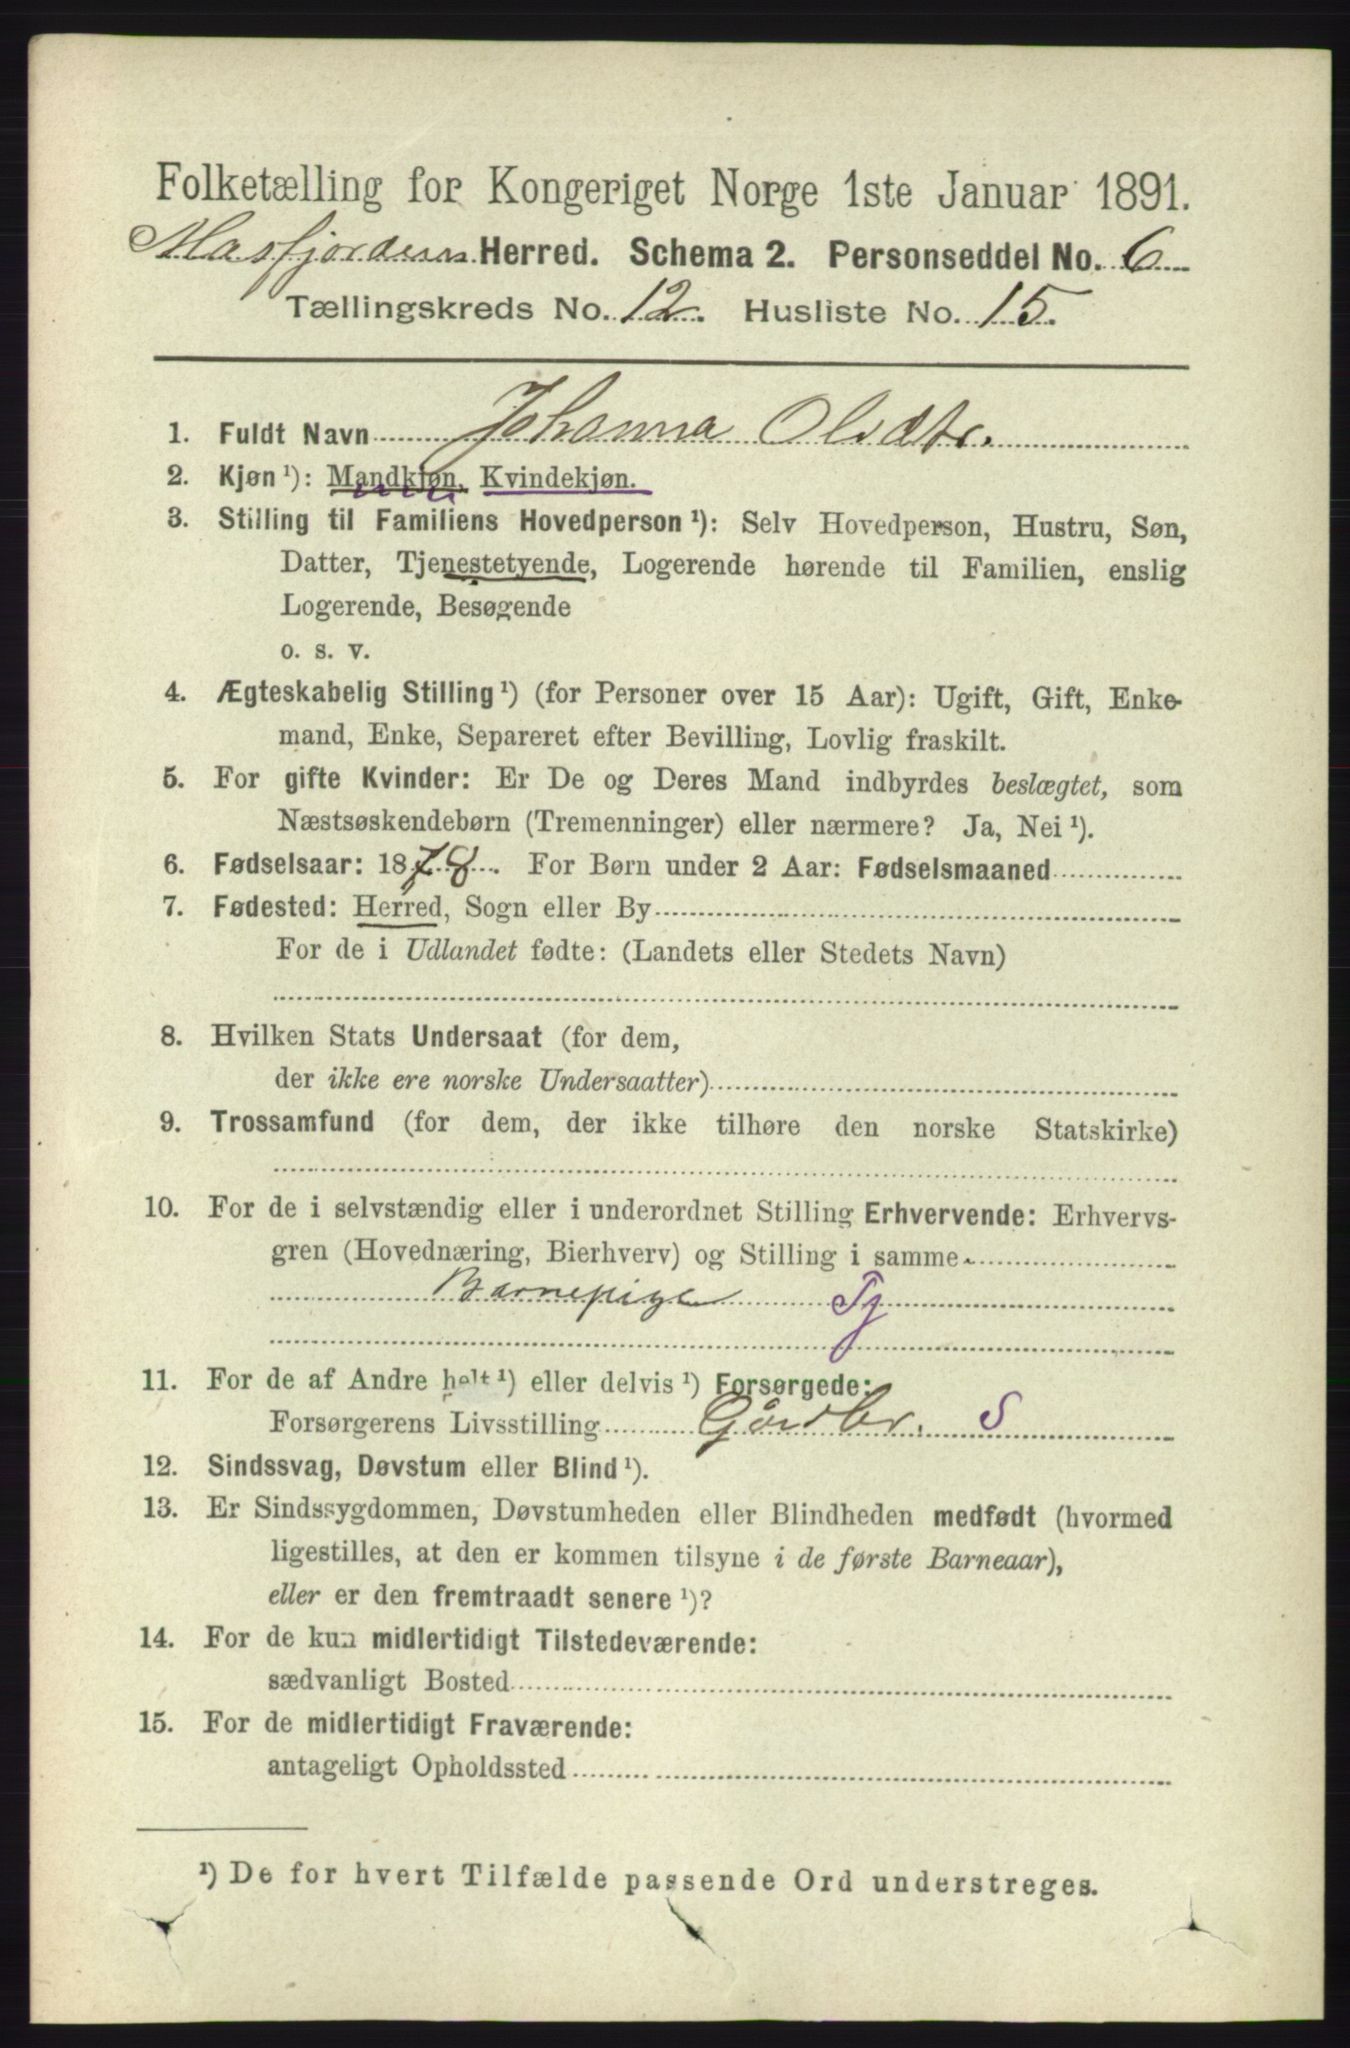 Folketælling for Kongeriget Norge 1ste Januar 1891.
Masfjorden Herred. Schema 2. Personseddel No. 6
Tællingskreds No. 12. Husliste No. 15.
1. Fuldt Navn Johanna Olsdtr.
2. Kjøn¹): Mandkjøn, Kvindekjøn.
3. Stilling til Familiens Hovedperson¹): Selv Hovedperson, Hustru, Søn,
Datter, Tjenestetyende, Logerende hørende til Familien, enslig
Logerende, Besøgende
o. s. v.
4. Ægteskabelig Stilling¹) (for Personer over 15 Aar): Ugift, Gift, Enke-
mand, Enke, Separeret efter Bevilling, Lovlig fraskilt.
5. For gifte Kvinder: Er De og Deres Mand indbyrdes beslægtet, som
Næstsøskendebørn (Tremenninger) eller nærmere? Ja, Nei¹).
6. Fødselsaar: 1878. For Børn under 2 Aar: Fødselsmaaned
7. Fødested: Herred, Sogn eller By
For de i Udlandet fødte: (Landets eller Stedets Navn)
8. Hvilken Stats Undersaat (for dem,
der ikke ere norske Undersaatter)
9. Trossamfund (for dem, der ikke tilhøre den norske Statskirke)
10. For de i selvstændig eller i underordnet Stilling Erhvervende: Erhvervs-
gren (Hovednæring, Bierhverv) og Stilling i samme
Barnepige Tj
11. For de af Andre helt¹) eller delvis¹) Forsørgede:
Forsørgerens Livsstilling Gårdbr. S
12. Sindssvag, Døvstum eller Blind¹).
13. Er Sindssygdommen, Døvstumheden eller Blindheden medfødt (hvormed
ligestilles, at den er kommen tilsyne i de første Barneaar),
eller er den fremtraadt senere¹)?
14. For de kun midlertidigt Tilstedeværende:
sædvanligt Bosted
15. For de midlertidigt Fraværende:
antageligt Opholdssted
¹) De for hvert Tilfælde passende Ord understreges.